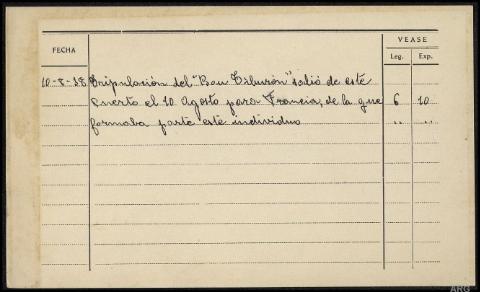 VEASE
FECHA
Leg. Exp.
10-8-38 Tripulación del "Bou Tiburón" salió de este
puerto el 10 Agosto para Francia, de la que 6 10
formaba parte este individuo " "
ARG